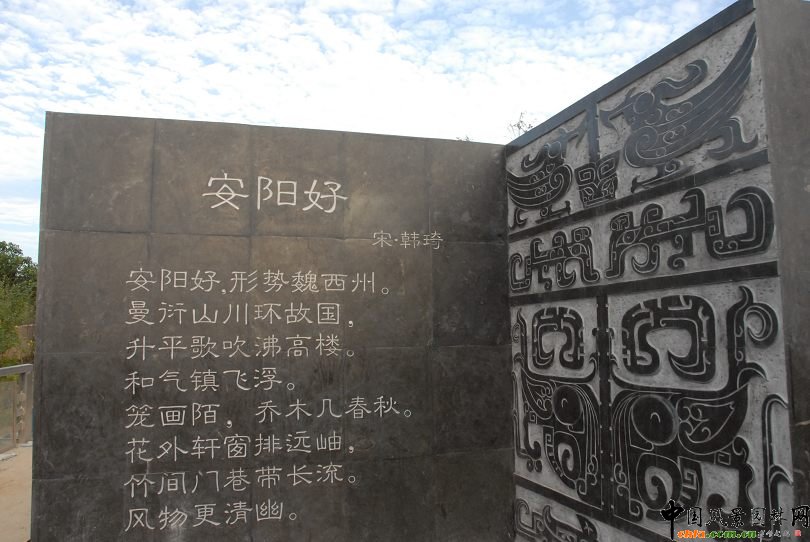 安阳好
宋·韩琦
安阳好，形势魏西州。
曼衍山川环故国，
升平歌吹沸高楼。
和气镇飞浮。
笼画陌，乔木几春秋。
花外轩窗排远岫，
竹间门巷带长流。
风物更清幽。
中国风景园林网